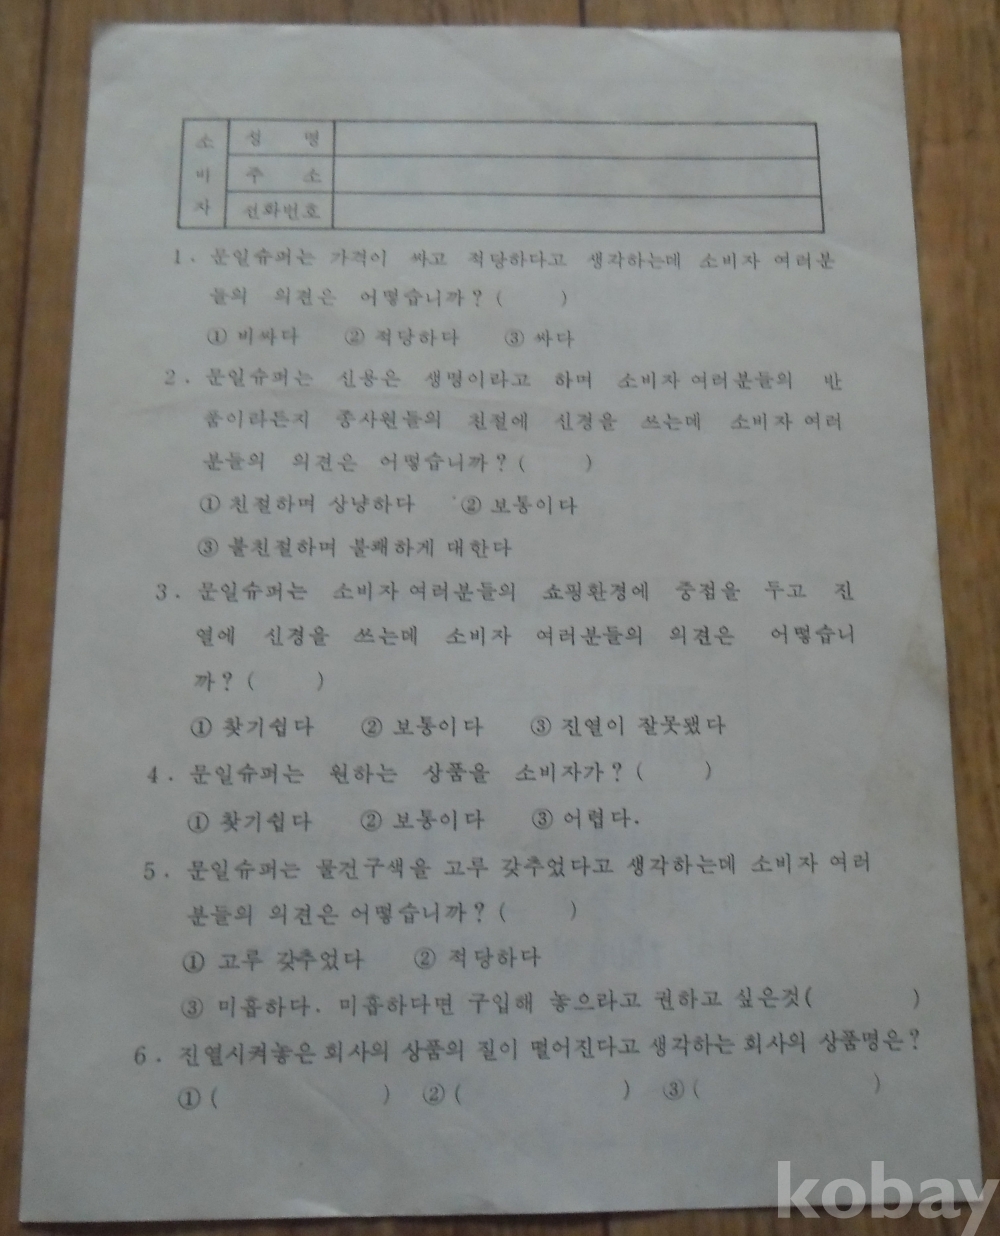 소비자
성 명
주 소
전화번호
1. 문일슈퍼는 가격이 싸고 적당하다고 생각하는데 소비자 여러분
들의 의견은 어떻습니까? ( )
① 비싸다 ② 적당하다 ③ 싸다
2. 문일슈퍼는 신용은 생명이라고 하며 소비자 여러분들의 반
품이라든지 종사원들의 친절에 신경을 쓰는데 소비자 여러
분들의 의견은 어떻습니까? ( )
① 친절하며 상냥하다 ② 보통이다
③ 불친절하며 불쾌하게 대한다
3. 문일슈퍼는 소비자 여러분들의 쇼핑환경에 중점을 두고 진
열에 신경을 쓰는데 소비자 여러분들의 의견은 어떻습니
까? ( )
① 찾기쉽다 ② 보통이다 ③ 진열이 잘못됐다
4. 문일슈퍼는 원하는 상품을 소비자가? ( )
① 찾기쉽다 ② 보통이다 ③ 어렵다.
5. 문일슈퍼는 물건구색을 고루 갖추었다고 생각하는데 소비자 여러
분들의 의견은 어떻습니까? ( )
① 고루 갖추었다 ② 적당하다
③ 미흡하다. 미흡하다면 구입해 놓으라고 권하고 싶은것( )
6. 진열시켜놓은 회사의 상품의 질이 떨어진다고 생각하는 회사의 상품명은?
① ( ) ② ( ) ③ ( )
kobay